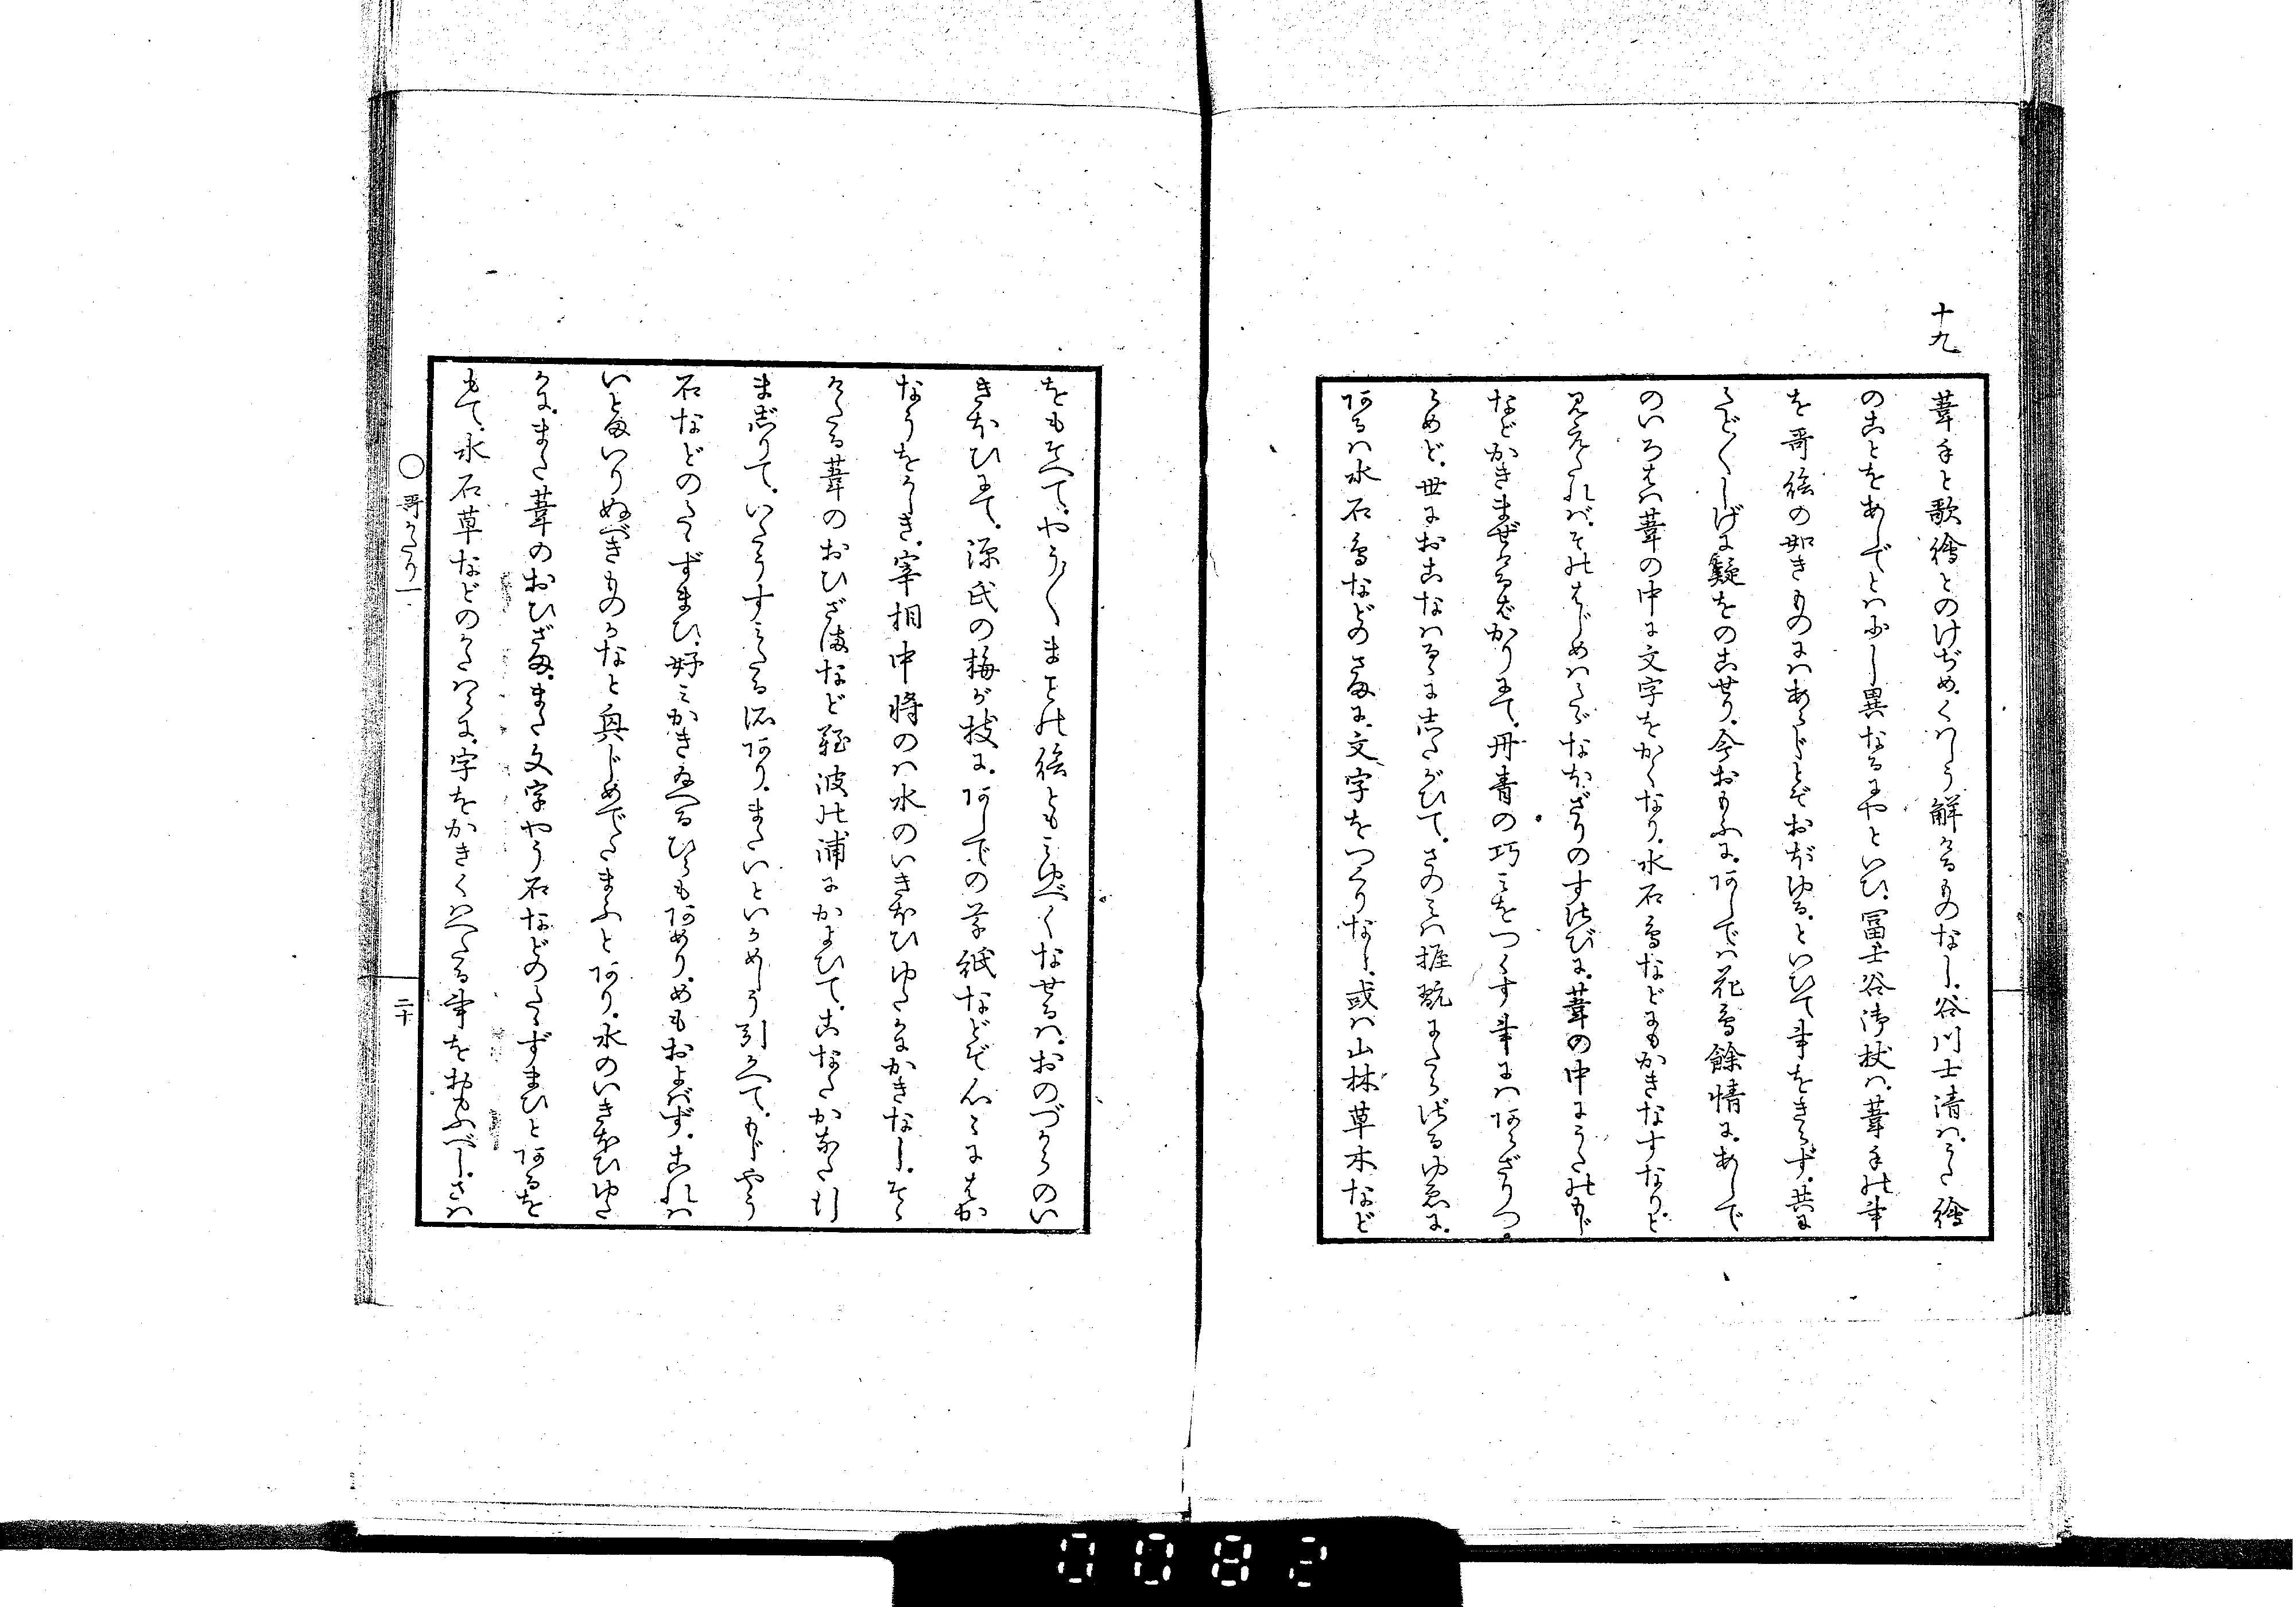 十九
葦手と歌繪とのけぢめ、くハしう解けるものなし、谷川士清ハ、うた繪
のことをあしでとハ少し異なるにやといひ、冨士谷御杖ハ、葦手の事
を哥絵の如きものにハあらじとぞおぼゆる、といひて事をきらず、共に
たど〱しげに疑をのこせり、今おもふに、あしでハ花鳥餘情に、あしで
のいろはハ葦の中に文字をかくなり、水石鳥などにもかきなすなりと
見えたれバ、そのはじめハたゞなほざりのすさびに、葦の中にうたのもじ
などかきまぜたるばかりにて、丹青の巧ミをつくす事にハあらざりつ
らめど、世におこなハるゝに志たがひて、さのミハ握翫にたらざるゆゑに、
あるハ水石鳥などのさまに、文字をつくりなし、或ハ山林草木など
をもそへて、やう〱まことの絵ともミゆべくなせるハ、おのづからのい
きほひにて、源氏の梅が枝に、あしでの草紙などぞ心〻にはか
なうをかしき、宰相中將のハ水のいきほひゆたかにかきなし、そゝ
けたる葦のおひざまなど難波の浦にかよひて、こなたかなた行
ま志りて、いたうすミたる所あり、またいといかめしう引かへて、もじやう
石などのたゝずまひ、好ミかき給へるひらもあめり、めもおよバず、これハ
いとまいりぬべきものかなと興じめでたまふとあり、水のいきほひゆた
かに、また葦のおひざま、また文字やう石などのたゝずまひとあるを
もて、水石草などのかたハらに、字をかきくハへたる事をおもふべし、さハ
○哥かたり一
二十
0082